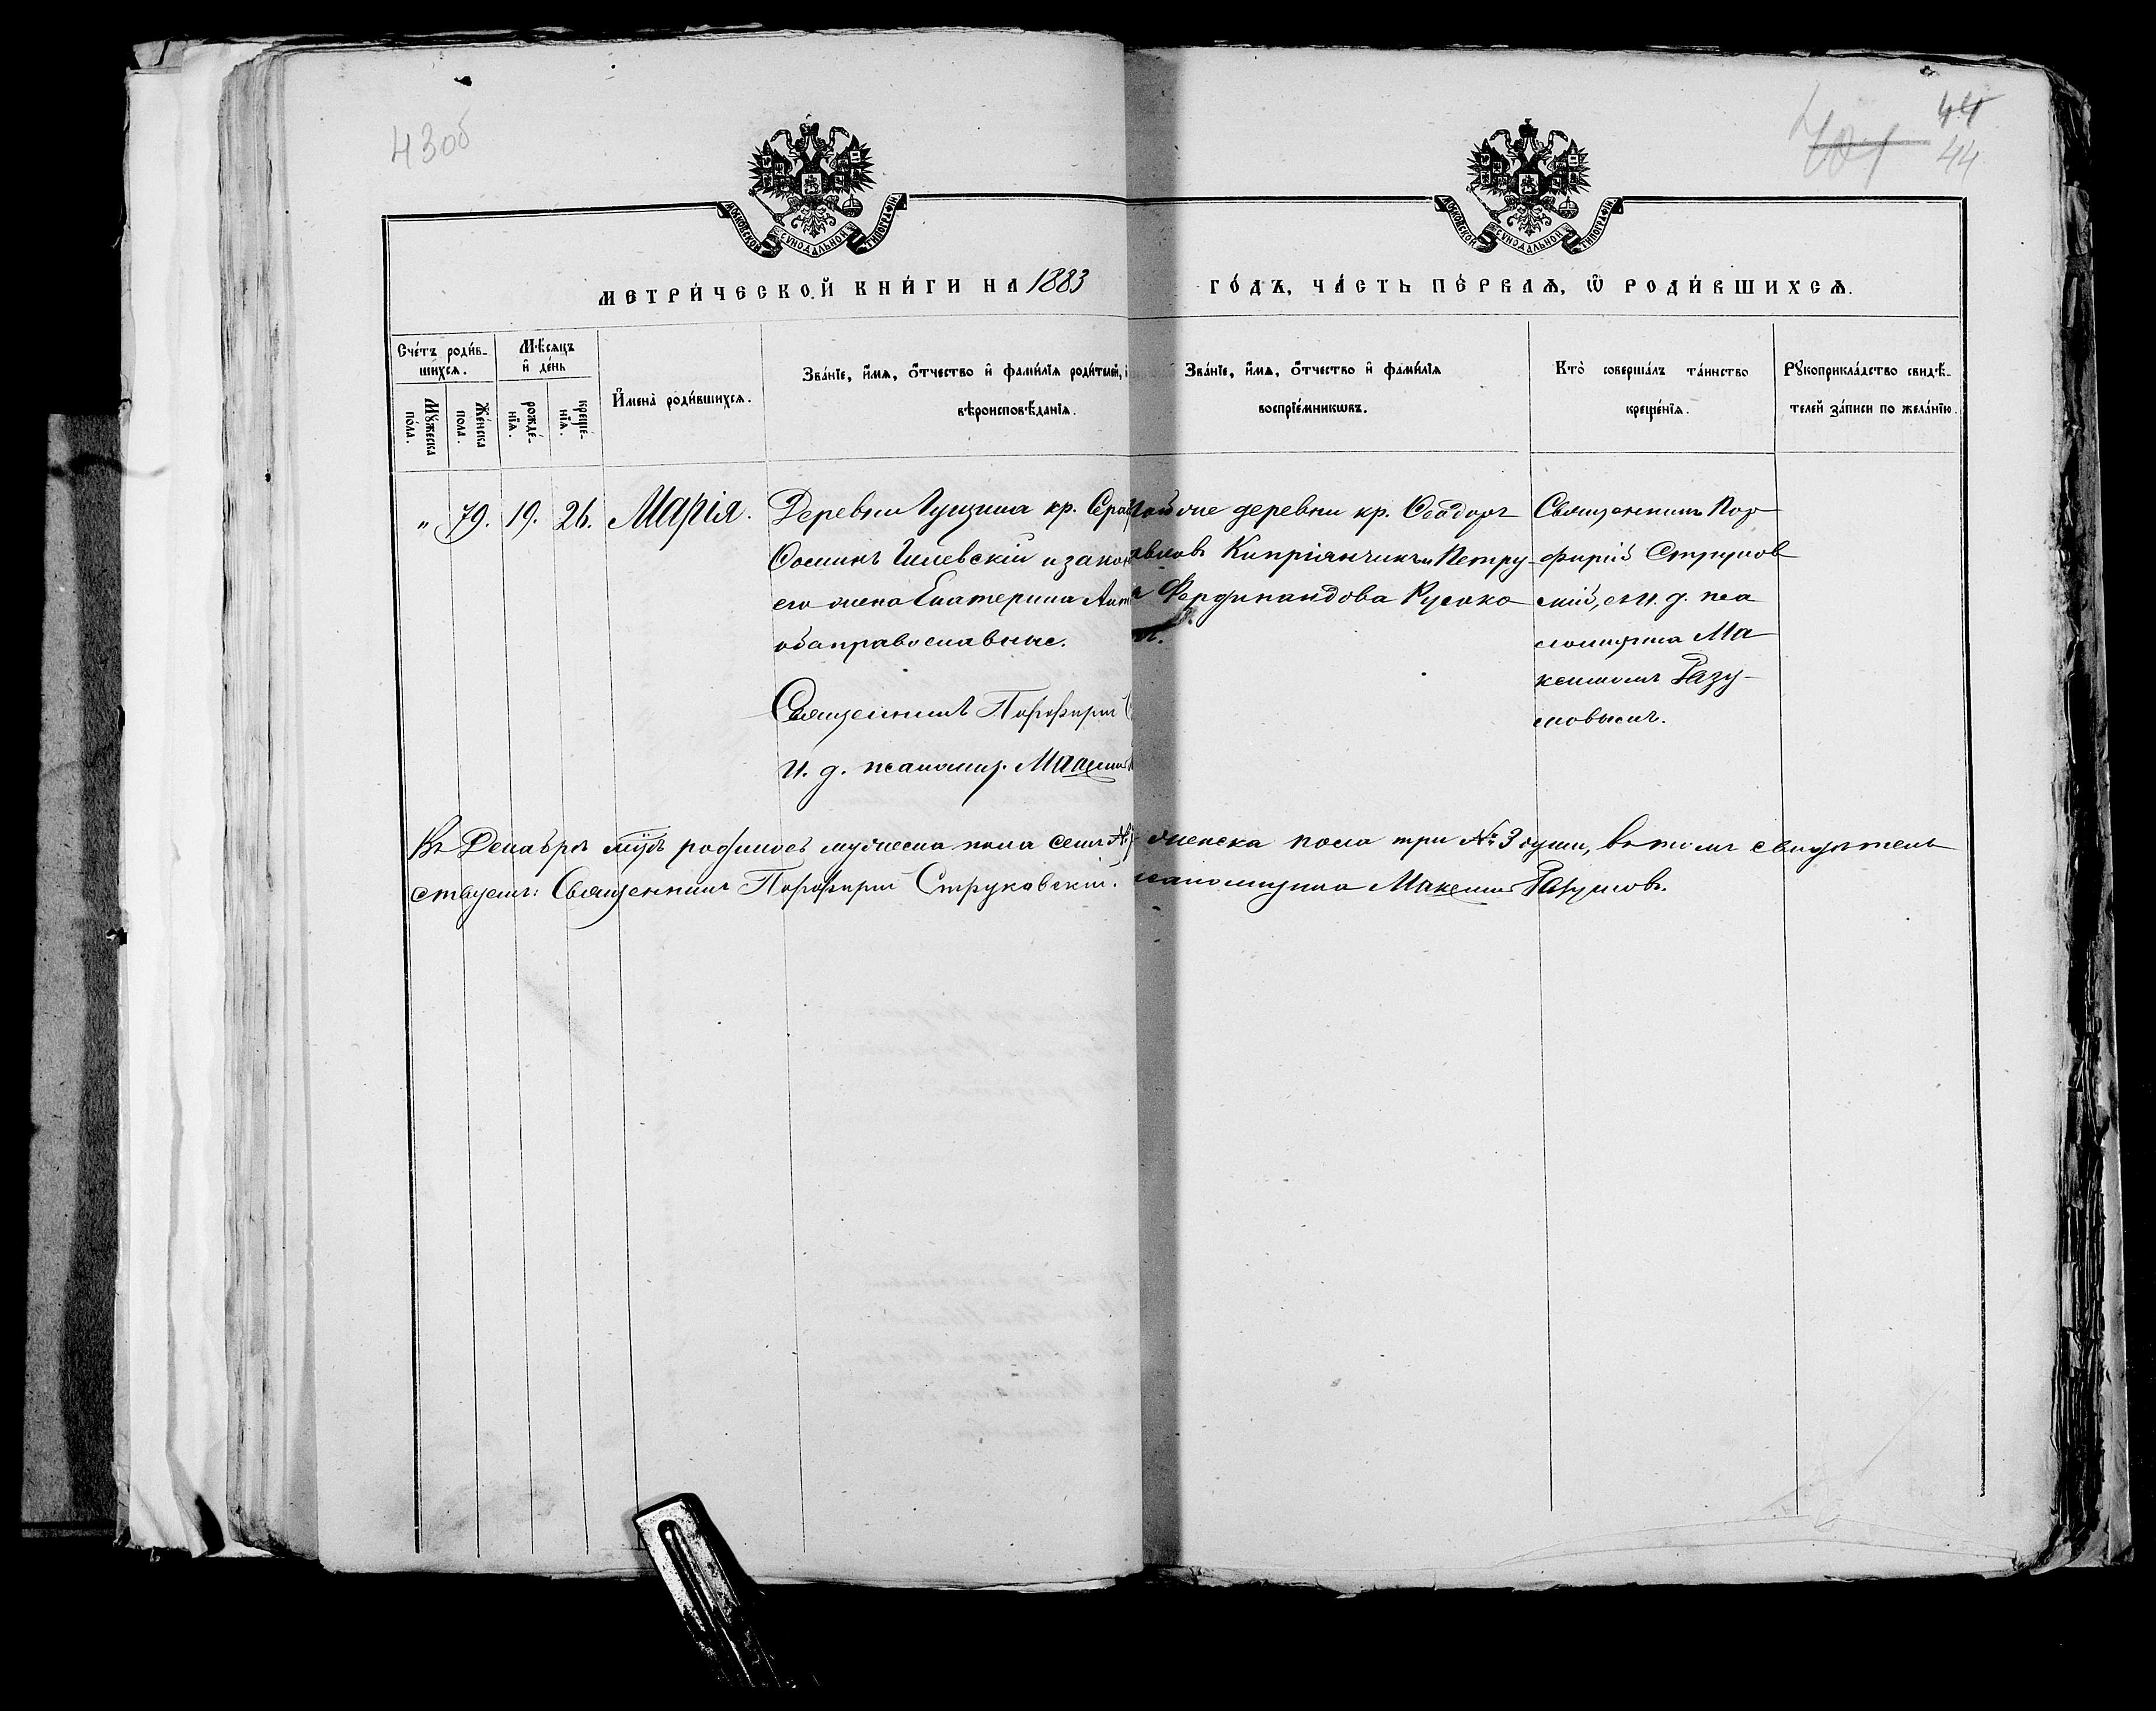 43об
44
44
МОСКОВСКОЙ СѴНОДАЛЬНОЙ ТИПОГРАФІИ
МОСКОВСКОЙ СѴНОДАЛЬНОЙ ТИПОГРАФІИ
МЕТРИ́ЧЕСКОЙ КНИ́ГИ НА 1883
ГО́ДЪ, ЧА́СТЬ ПЕ́РВАѦ, Ѽ РОДИ́ВШИХСѦ.
Сче́тъ роди́в-
шихсѧ.
Мѣ́сѧцъ
и҆ де́нь
Мꙋ́жеска
по́ла.
Же́нска
пола.
рожде́-
нїѧ.
креще́-
нїѧ.
И҆мена̀ роди́вшихсѧ.
Зва́нїе, и҆́мѧ, ѻ҆́тчество и҆ фами́лїѧ роди́телей,
вѣроисповѣ́данїѧ.
Зва́нїе, и҆́мѧ, ѻ҆́тчество и҆ фами́лїѧ
воспрїе́мникѡвъ.
Кто̀ соверша́лъ та́инство
креще́нїѧ.
Рꙋкоприкла́дство свидѣ́-
телей за́писи по жела́нїю.
" 79. 19. 26. Марія.
Деревни Гущина кр.
Ѳоминъ и закон
его жена Екатерина Ант
оба православные.
Священникъ Порфирій
И. д. псаломщ. Максим
той же деревни кр. Ѳеодоръ
Кипріянчикъ и Петру-
Фердинандова Русако
Священникъ Пор-
фирій Струков
скій, съ и. д. пса
ломщика Ма
ксимомъ Разу-
мовымъ.
Въ Декабрѣ мц̃ѣ родилось мужеска пола семь № 7 женска пола три № 3 души, въ томъ свидѣтель
ствуемъ: Священникъ Порфирій Струковскій. псаломщика Максим Разумовъ.